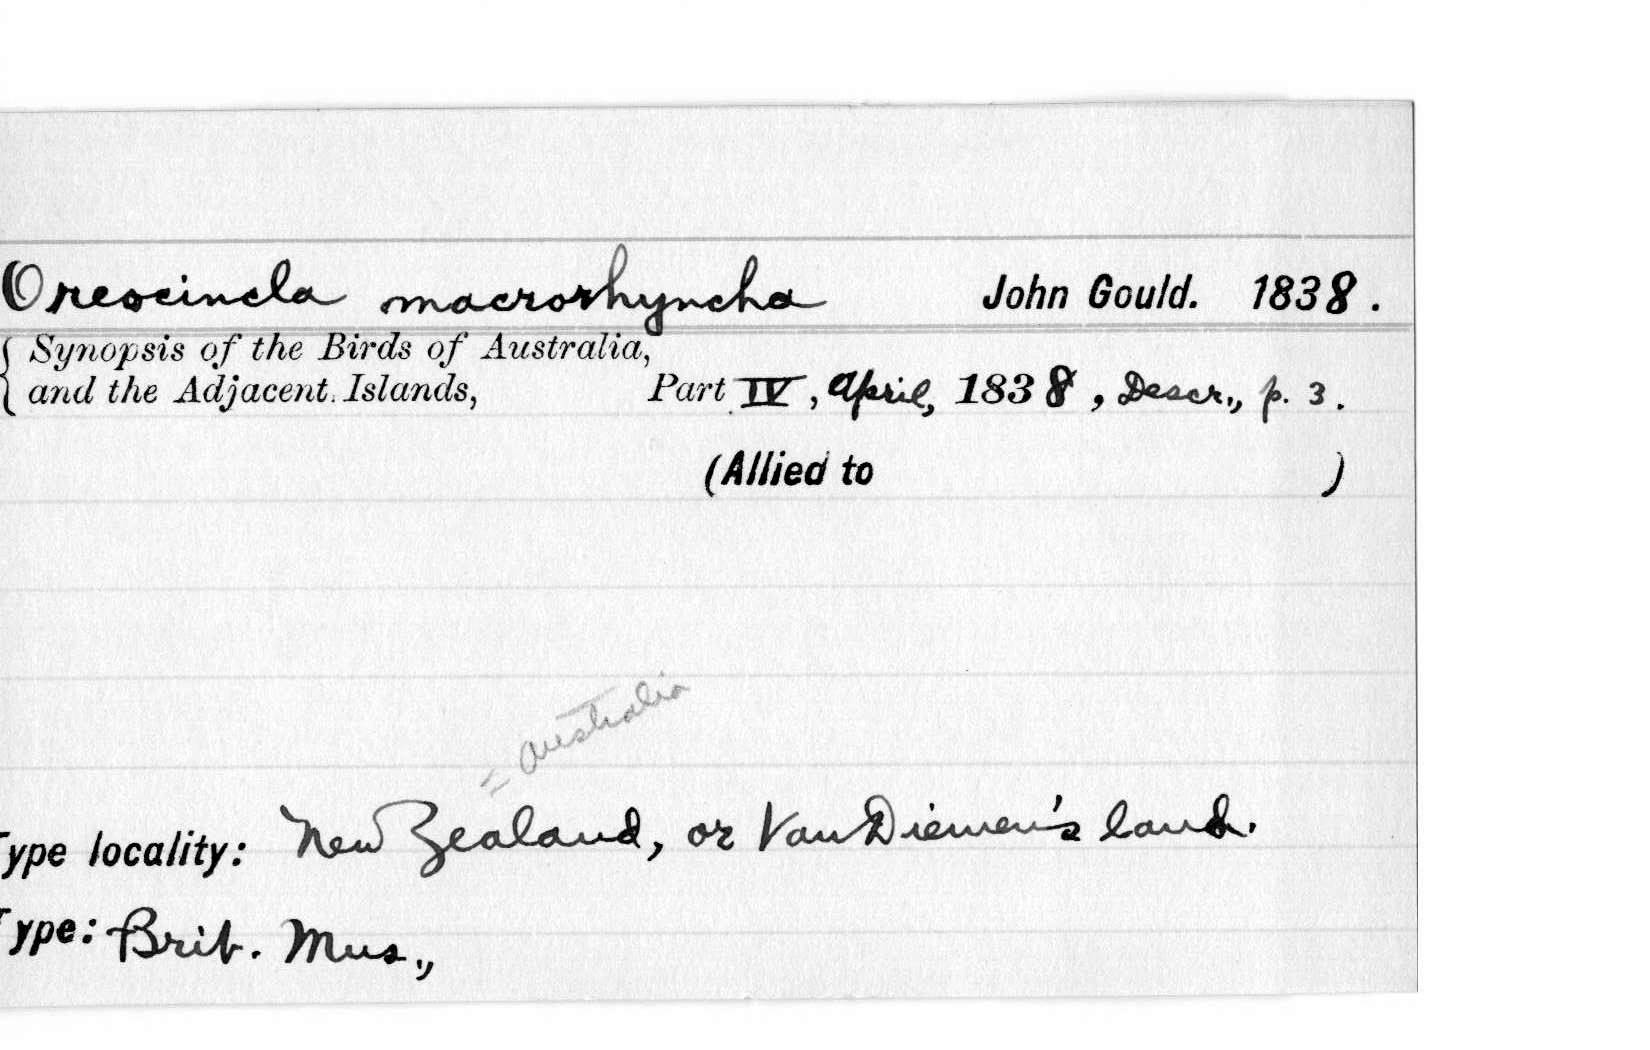 Oreocincla macrorhyncha John Gould. 1838.
Synopsis of the Birds of Australia,
and the Adjacent Islands, Part IV, April, 1838, Descr., p. 3.
(Allied to )
= Australia
Type locality: New Zealand, or Van Diemen's land.
Type: Brit. Mus.,